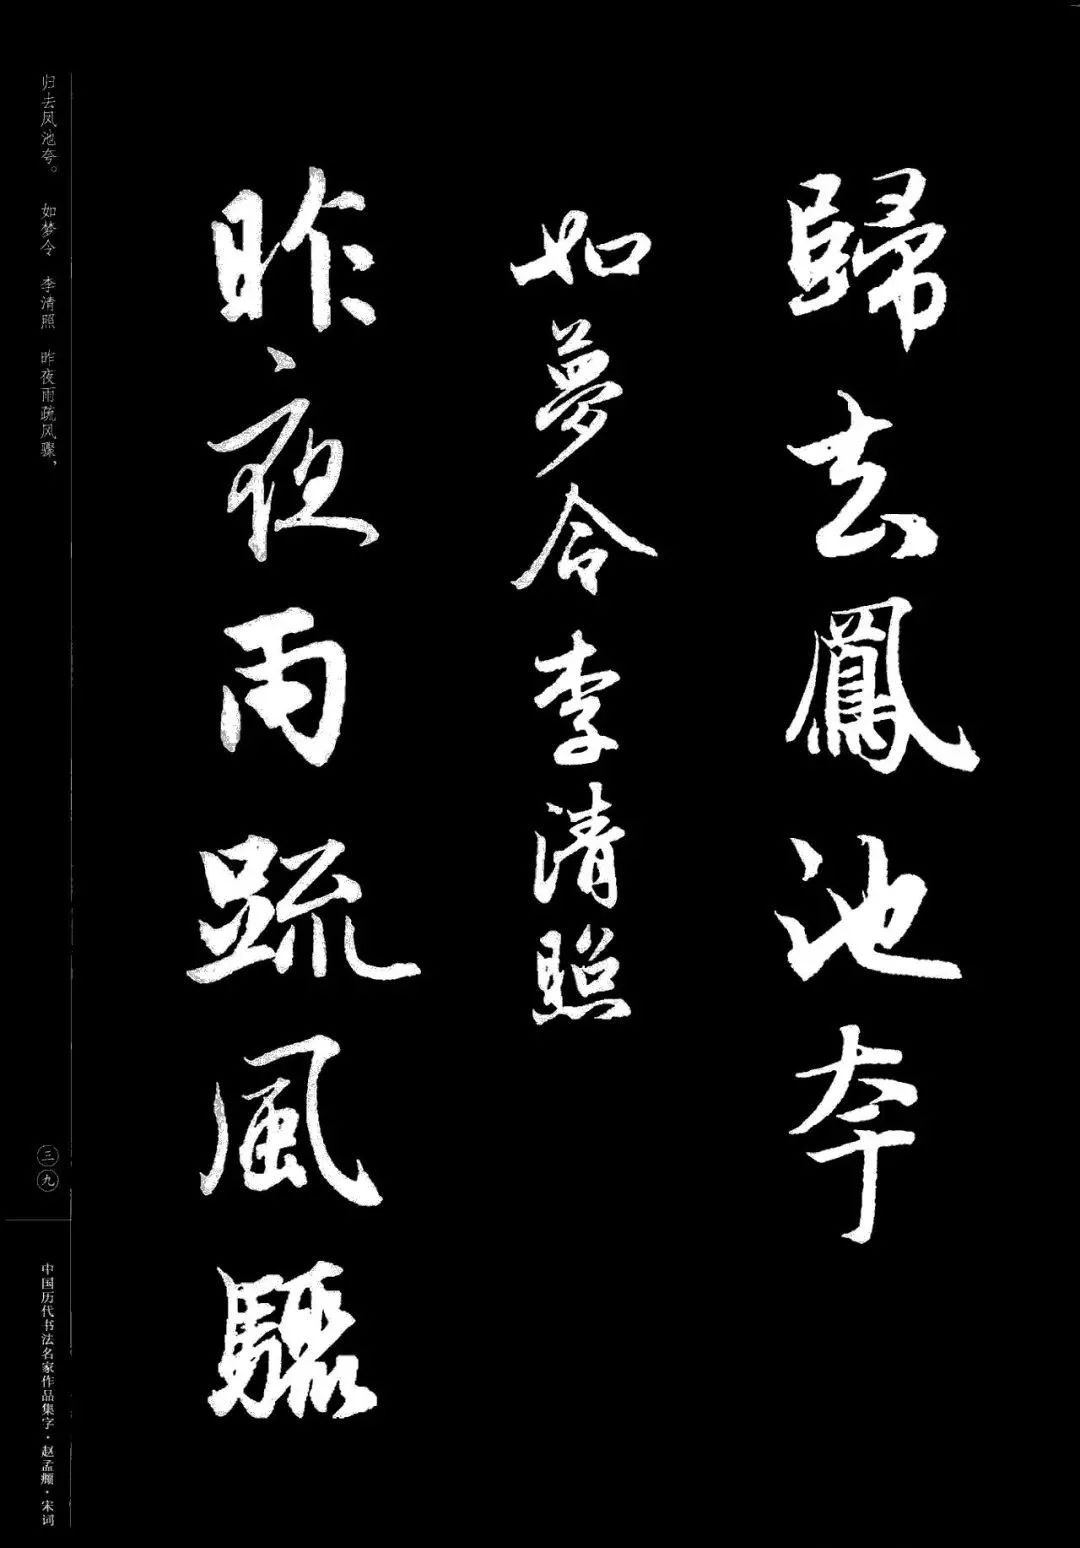 歸去鳳池夸
如夢令李清照
昨夜雨疏風驟
归去凤池夸。 如梦令 李清照 昨夜雨疏风骤，
三九
中国历代书法名家作品集字·赵孟頫·宋词